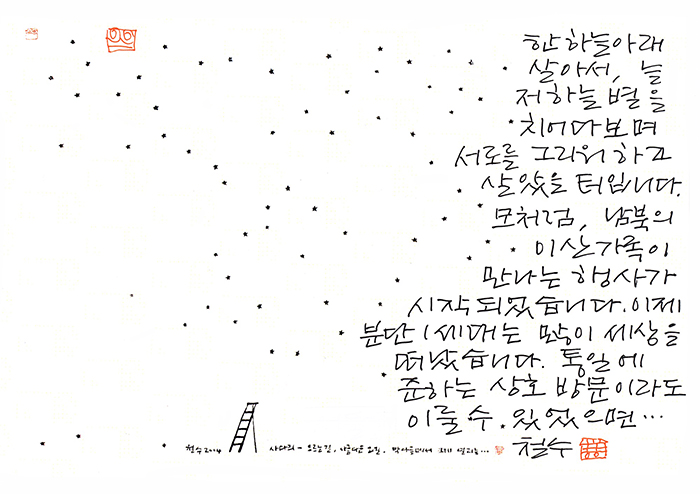 한 하늘아래
살아서, 늘
저 하늘 별을
치어다보며
서로를 그리워 하고
살았을 터입니다.
모처럼, 남북의
이산가족이
만나는 행사가
시작 되었습니다. 이제
분단 1세대는 많이 세상을
떠났습니다. 통일에
준하는 상호 방문이라도
이룰 수 있었으면…
철수
철수 2014 사다리 - 오르는 길,